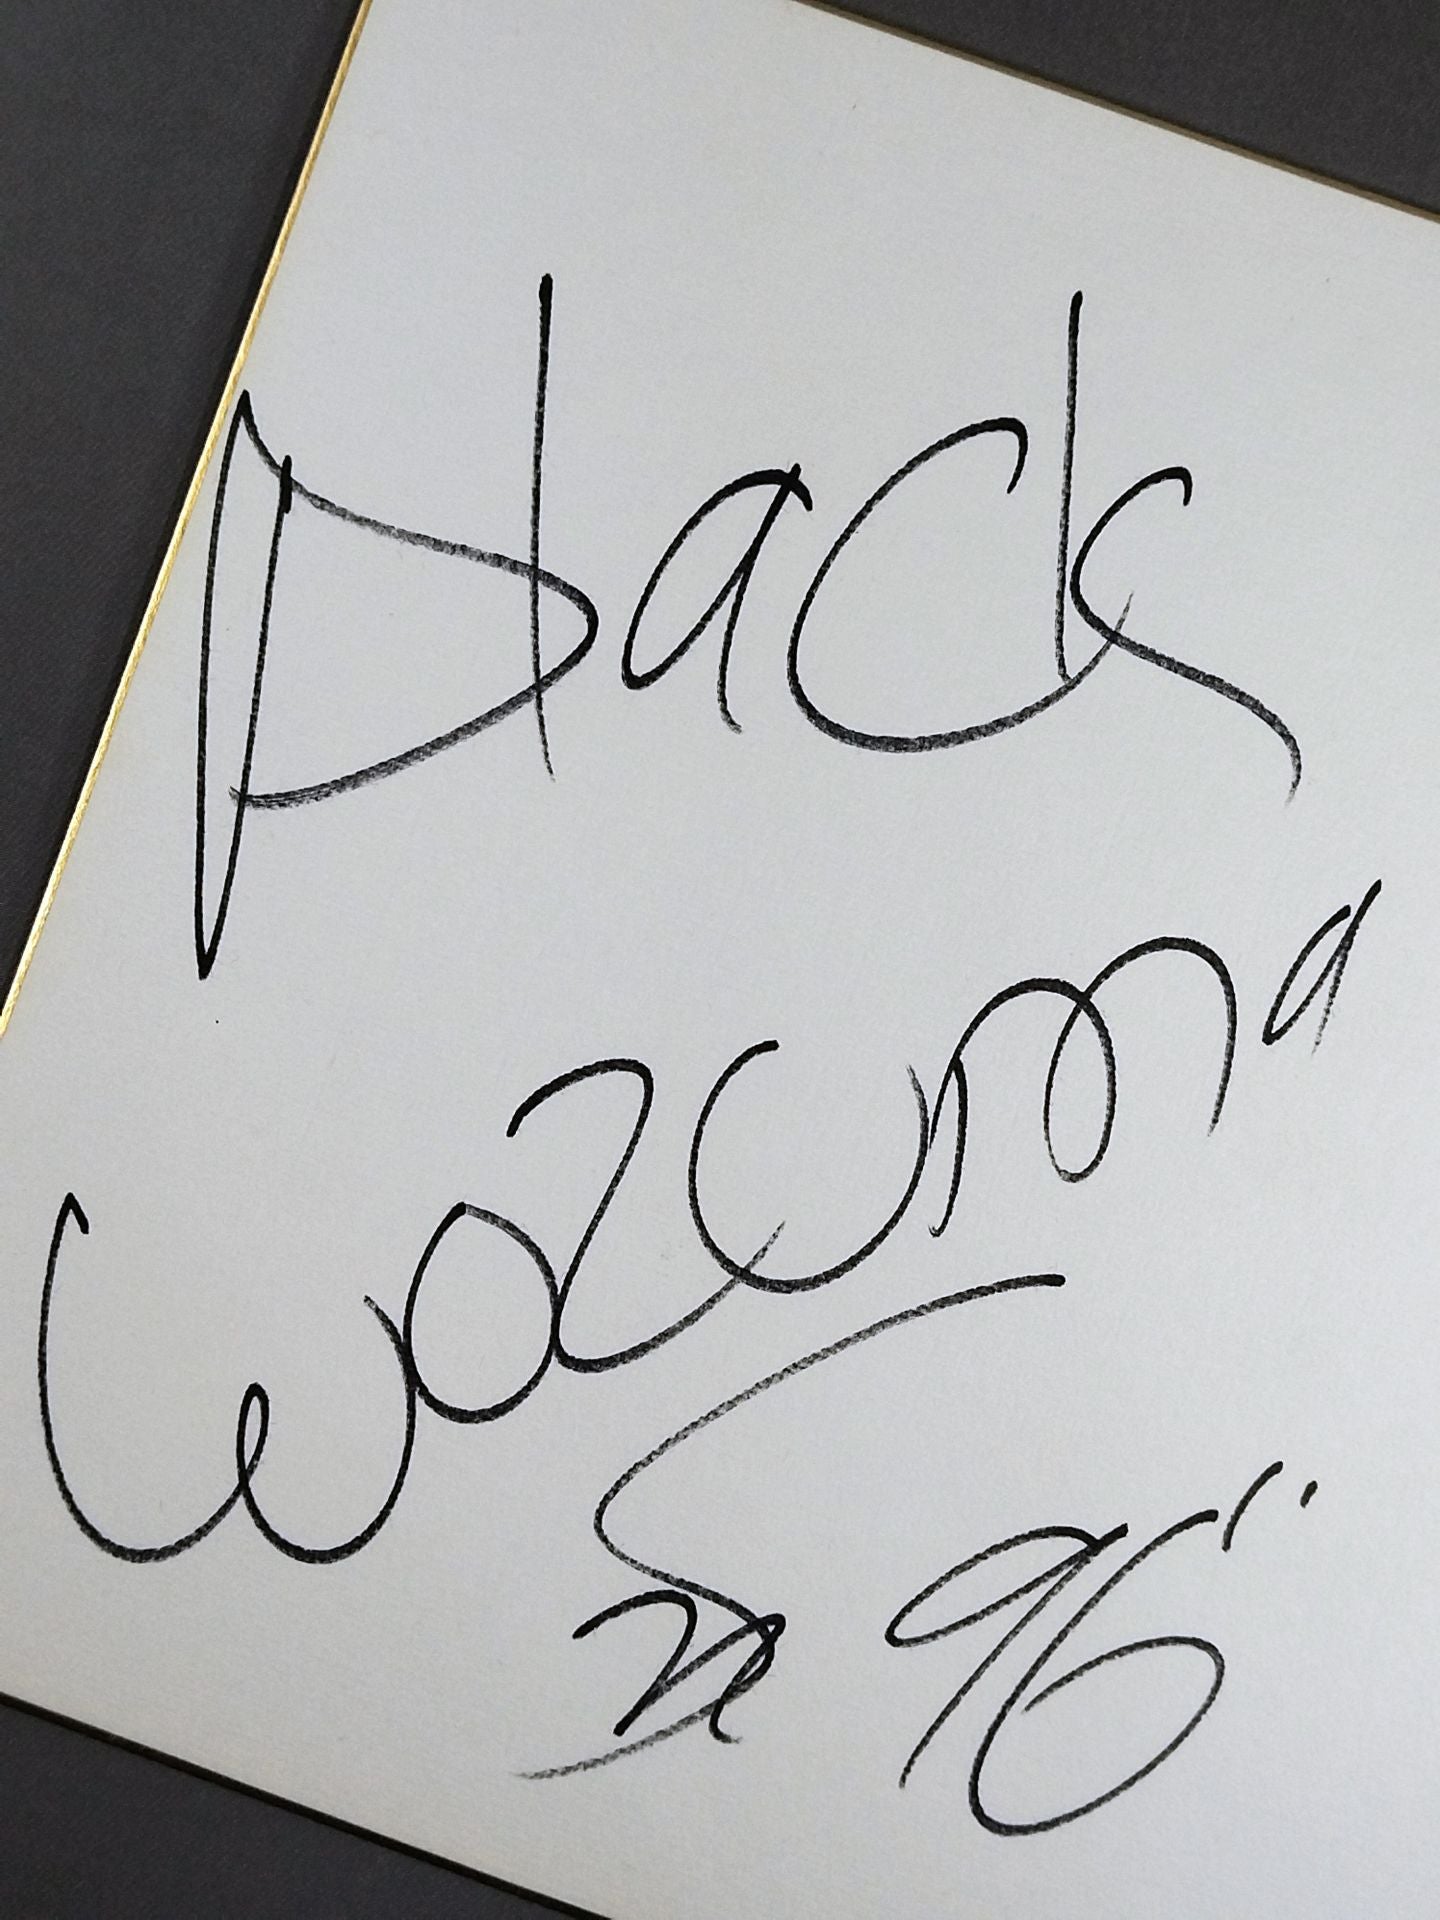 Black
Wozuma
96'